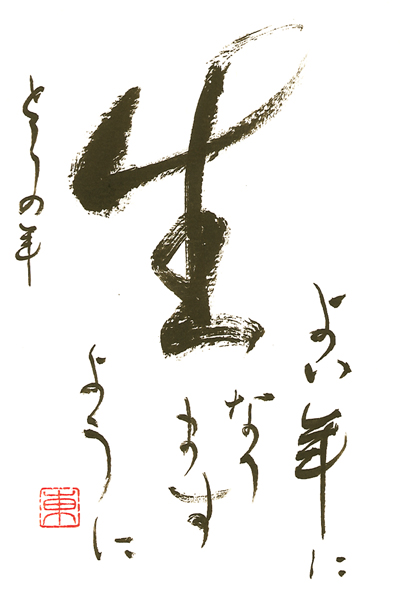 生
よい年に
なり
ます
ように
とらの年
東